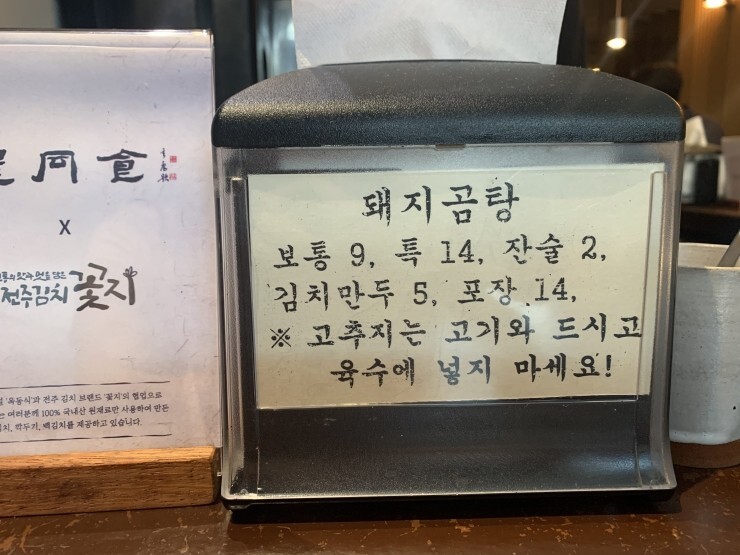 同食
X
전주김치 꽃지
'옥동식'과 전주 김치 브랜드 꽃지의 협업으로
여러분께 100% 국내산 원재료만 사용하여 만든
깍두기, 백김치를 제공하고 있습니다.
돼지곰탕
보통 9, 특 14, 잔술 2,
김치만두 5, 포장 14,
※ 고추지는 고기와 드시고
육수에 넣지 마세요!